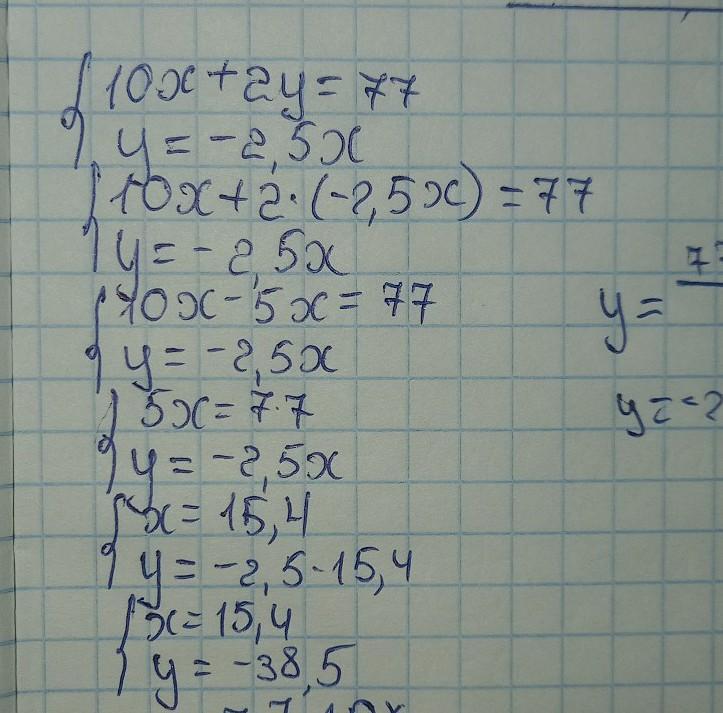 10x + 2y = 77
y = -2,5x
10x + 2·(-2,5x) = 77
y = -2,5x
10x - 5x = 77
y = -2,5x
5x = 7·7
y = -2,5x
x = 15,4
y = -2,5·15,4
x = 15,4
y = -38,5
y =
y = -2